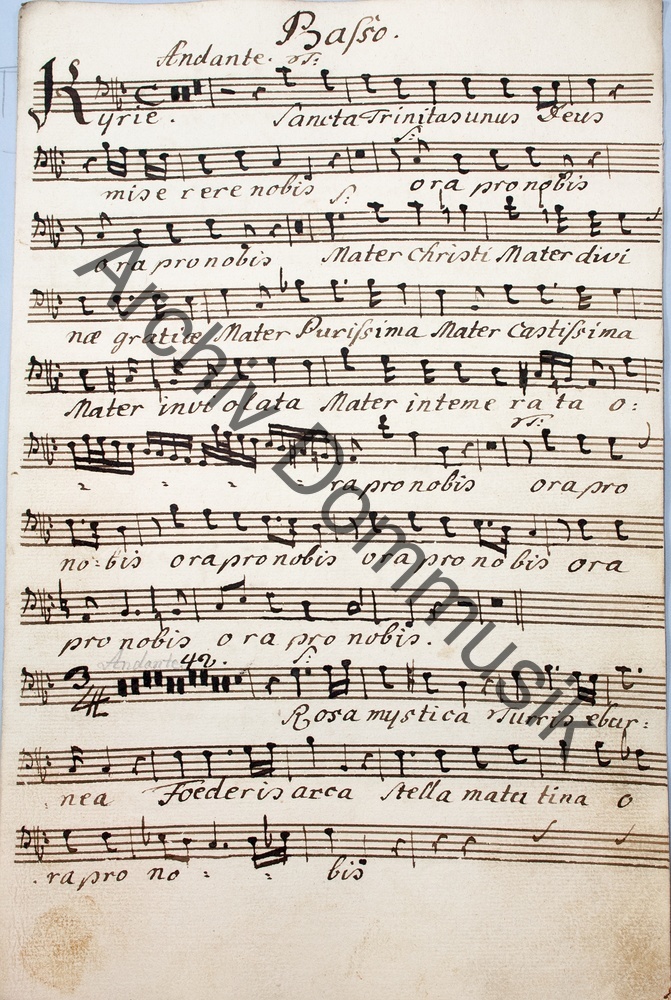 Basso.
Andante. T:
Kyrie. Sancta Trinitas unus Deus
S:
mise rere nobis ora pro nobis
S:
ora pro nobis Mater Christi Mater divi
næ gratiæ Mater Purissima Mater Castissima
Mater invi olata Mater inteme ra ta o:
T:
ra pro nobis ora pro
no-bis ora pro nobis ora pro nobis ora
pro nobis o ra pro nobis.
Andante 42. S:
3/4
Rosa mystica Turris ebur:
nea Foederis arca Stella matu tina o
ra pro no : : bis
Archiv Dommusik